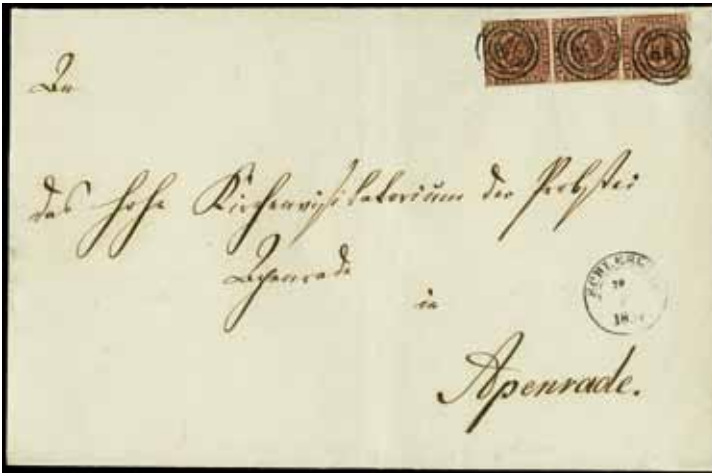 An
das hohe Kirchenvisitatorium der Probstei
Apenrade
in
Apenrade.